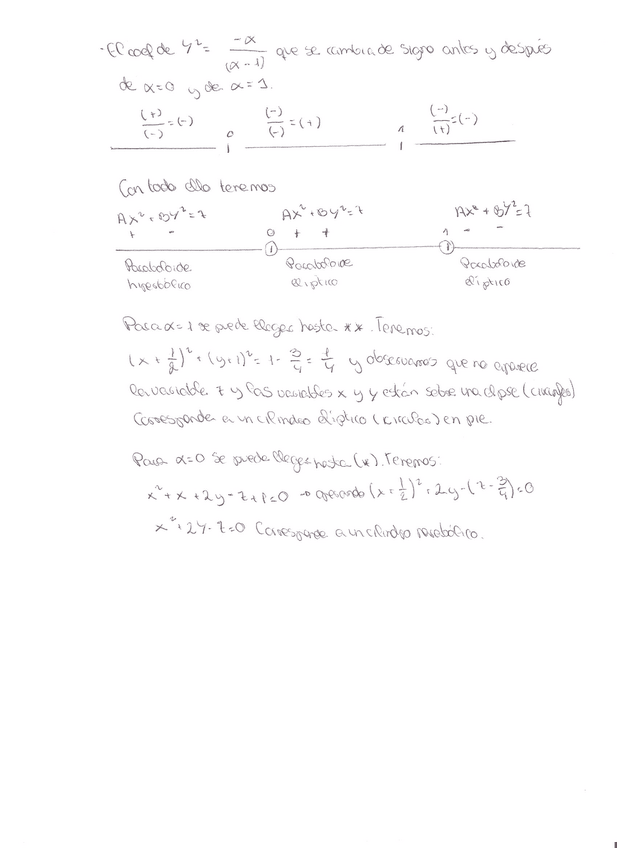 · El coef de Y² = -α/(α-1) que se cambia de signo antes y después
de α=0 y de α=1.
(+)/(-) = (-) 0 (-)/(-) = (+) 1 (-)/(+) = (-)
Con todo ello tenemos
AX² + BY² = Z AX² + BY² = Z AX² + BY² = Z
+ - 0 + + 1 - -
Paraboloide Paraboloide Paraboloide
hiperbólico elíptico elíptico
Para α=1 se puede llegar hasta **. Tenemos:
(x + 1/2)² + (y+1)² = 1 - 3/4 = 1/4 y observamos que no aparece
la variable z y las variables x y y están sobre una elipse (circular)
Corresponde a un cilindro elíptico (circular) en pie.
Para α=0 se puede llegar hasta (*). Tenemos:
x² + x + 2y - z + 1 = 0 → operando (x + 1/2)² + 2y - (z - 3/4) = 0
x² + 2Y - Z = 0 Corresponde a un cilindro parabólico.